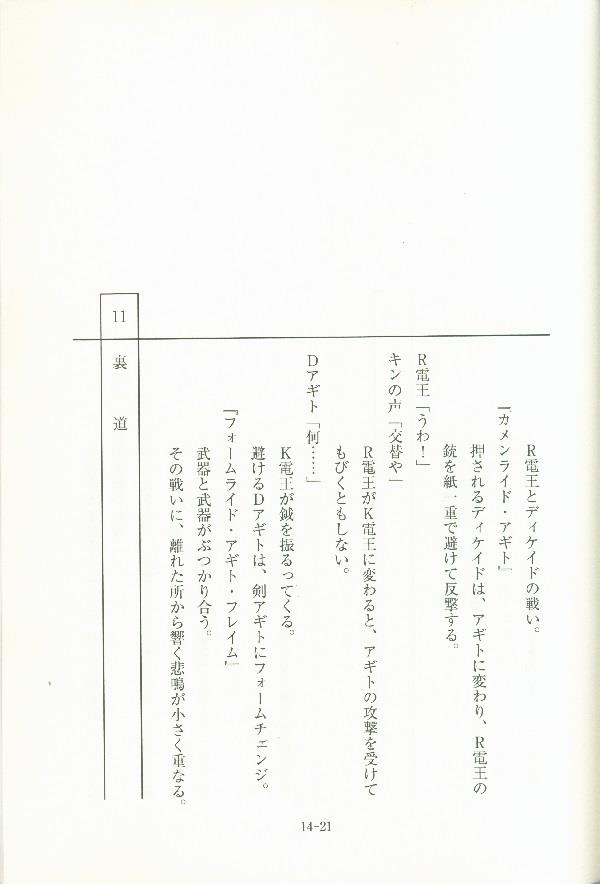 R電王とディケイドの戦い。
『カメンライド・アギト』
押されるディケイドは、アギトに変わり、R電王の
銃を紙一重で避けて反撃する。
R電王「うわ!」
キンの声「交替や」
R電王がK電王に変わると、アギトの攻撃を受けて
もびくともしない。
Dアギト「何……」
K電王が鉞を振るってくる。
避けるDアギトは、剣アギトにフォームチェンジ。
『フォームライド・アギト・フレイム』
武器と武器がぶつかり合う。
その戦いに、離れた所から響く悲鳴が小さく重なる。
11 裏道
14-21